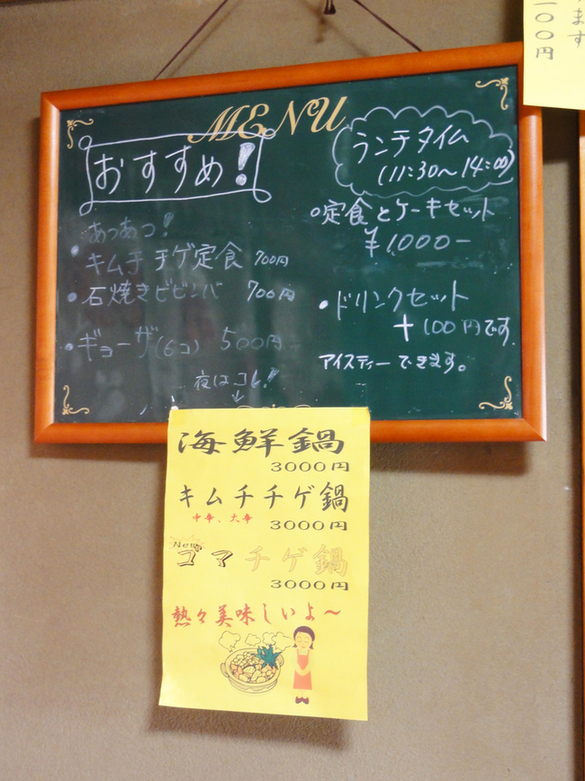 MENU
おすすめ!
あつあつ!
・キムチチゲ定食 700円
・石焼きビビンバ 700円
・ギョーザ(6コ) 500円
夜はコレ!
↓
ランチタイム
(11:30〜14:00)
○定食とケーキセット
¥1000-
・ドリンクセット
+100円です
アイスティーできます。
海鮮鍋
3000円
キムチチゲ鍋
中辛、大辛
3000円
New
ゴマチゲ鍋
3000円
熱々美味しいよ〜
ます
100円